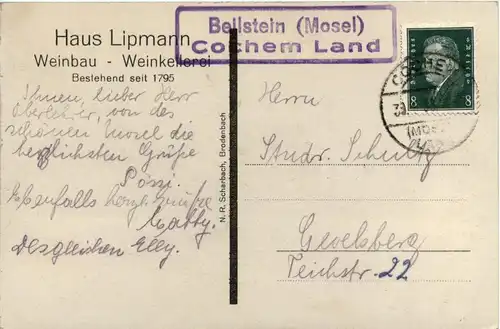 Haus Lipmann
Weinbau - Weinkellerei
Bestehend seit 1795
Beilstein (Mosel)
Cochem Land
Ihnen, lieber Herr
Oberlehrer, von der
schönen Mosel die
herzlichsten Grüße
Possi.
Ebenfalls herzl. Grüße
Matty.
Desgleichen Elly.
N. R. Scharbach, Brodenbach
8 8
COCHEM
(MOSEL)
Herrn
Studr. Schultz
Gevelsberg
Teichstr. 22